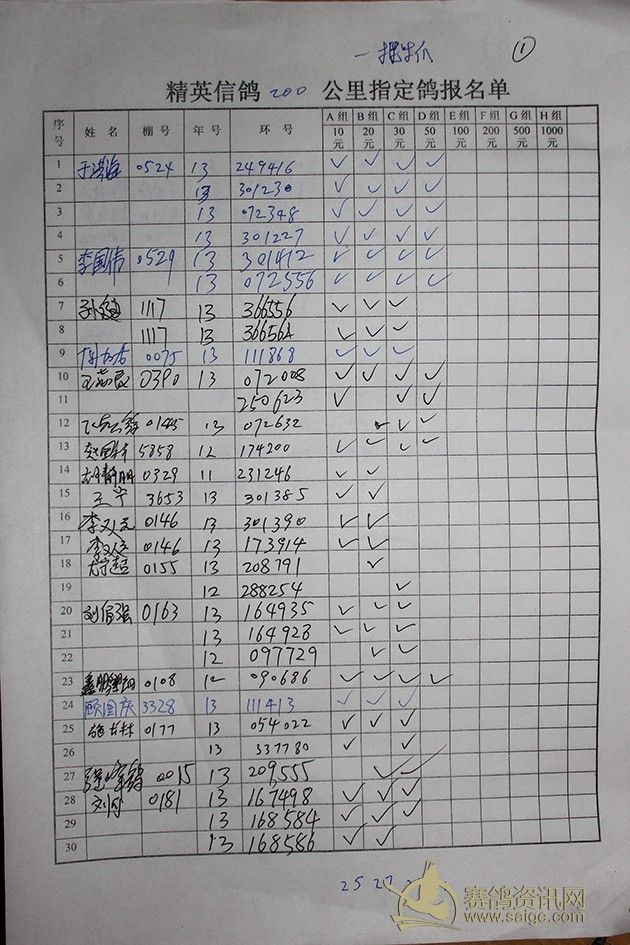 ①
精英信鸽200公里指定鸽报名单
序号 姓名 棚号 年号 环号 A组10元 B组20元 C组30元 D组50元 E组100元 F组200元 G组500元 H组1000元
1 于洪海 0524 13 249416 ✓ ✓ ✓ ✓
2 13 301230 ✓ ✓ ✓ ✓
3 13 072348 ✓ ✓ ✓ ✓
4 13 301227 ✓ ✓ ✓ ✓
5 李国伟 0529 13 301412 ✓ ✓ ✓ ✓
6 13 072556 ✓ ✓ ✓ ✓
7 1117 13 366556 ✓ ✓ ✓
8 1117 13 ✓ ✓ ✓
9 0075 13 111868 ✓ ✓ ✓
10 0390 13 072008 ✓ ✓ ✓ ✓
11 250623 ✓ ✓ ✓
12 13 072632 ✓ ✓ ✓
13 5858 12 174200 ✓ ✓ ✓ ✓
14 0329 11 231246 ✓ ✓
15 王宁 3653 13 301385 ✓ ✓
16 0146 13 301390 ✓ ✓
17 0146 13 173914 ✓ ✓
18 0155 13 208791 ✓
19 12 288254 ✓
20 刘信强 0163 13 164935 ✓ ✓ ✓
21 13 164928 ✓ ✓ ✓
22 12 097729 ✓ ✓
23 0108 12 090686 ✓ ✓ ✓ ✓
24 顾国庆 3328 13 111413 ✓ ✓ ✓
25 0177 13 054022 ✓ ✓ ✓
26 13 337780 ✓ ✓
27 0015 13 209555 ✓ ✓
28 0181 13 167498 ✓ ✓ ✓
29 13 168584 ✓ ✓ ✓
30 13 168586 ✓ ✓
25 27
赛鸽资讯网
www.saige.com